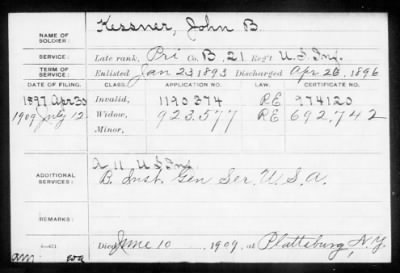 NAME OF SOLDIER: Kessner, John B.
SERVICE: Late rank, Pri Co. B, 21 Reg't U.S. Inf.
TERM OF SERVICE: Enlisted Jan 23 1893 Discharged Apr 26, 1896
DATE OF FILING. CLASS. APPLICATION NO. LAW. CERTIFICATE NO.
1897 Apr 30 Invalid, 1190374 RE 974120
1909 July 12 Widow, 923.577 RE 692,742
Minor,
ADDITIONAL SERVICES: A 11 U.S. Inf.
B. Inst. Gen Ser. U.S.A.
REMARKS:
Died June 10 1909, at Plattsburg, N.Y.